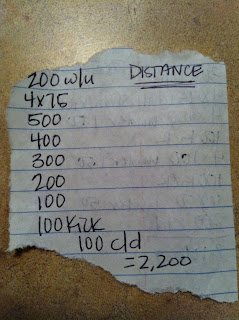 200 w/u DISTANCE
4x75
500
400
300
200
100
100 Kick
100 c/d
=2,200